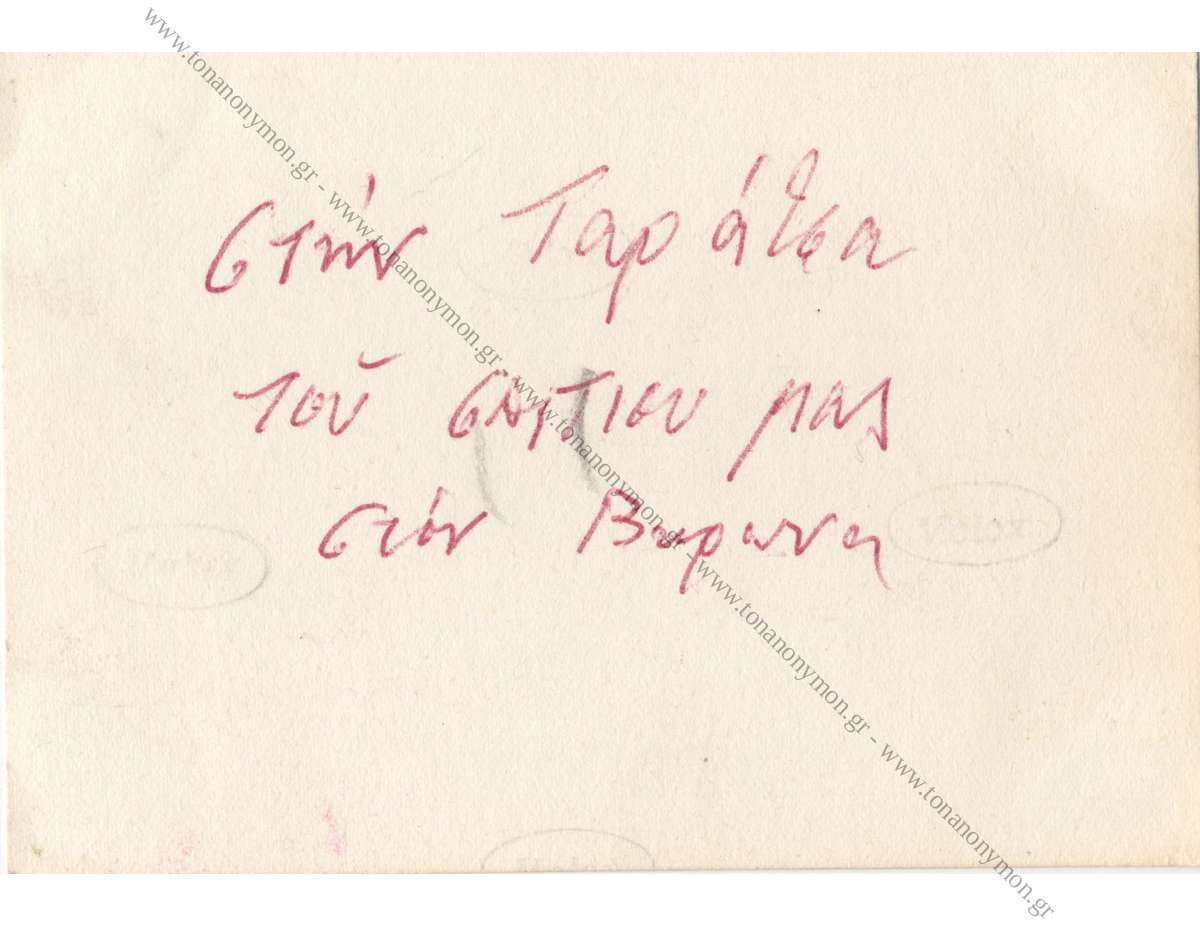 στήν Ταράτσα
τοῦ σπιτιου μας
στόν Βυρωνα
www.tonanonymon.gr - www.tonanonymon.gr - www.tonanonymon.gr - www.tonanonymon.gr - www.tonanonymon.gr